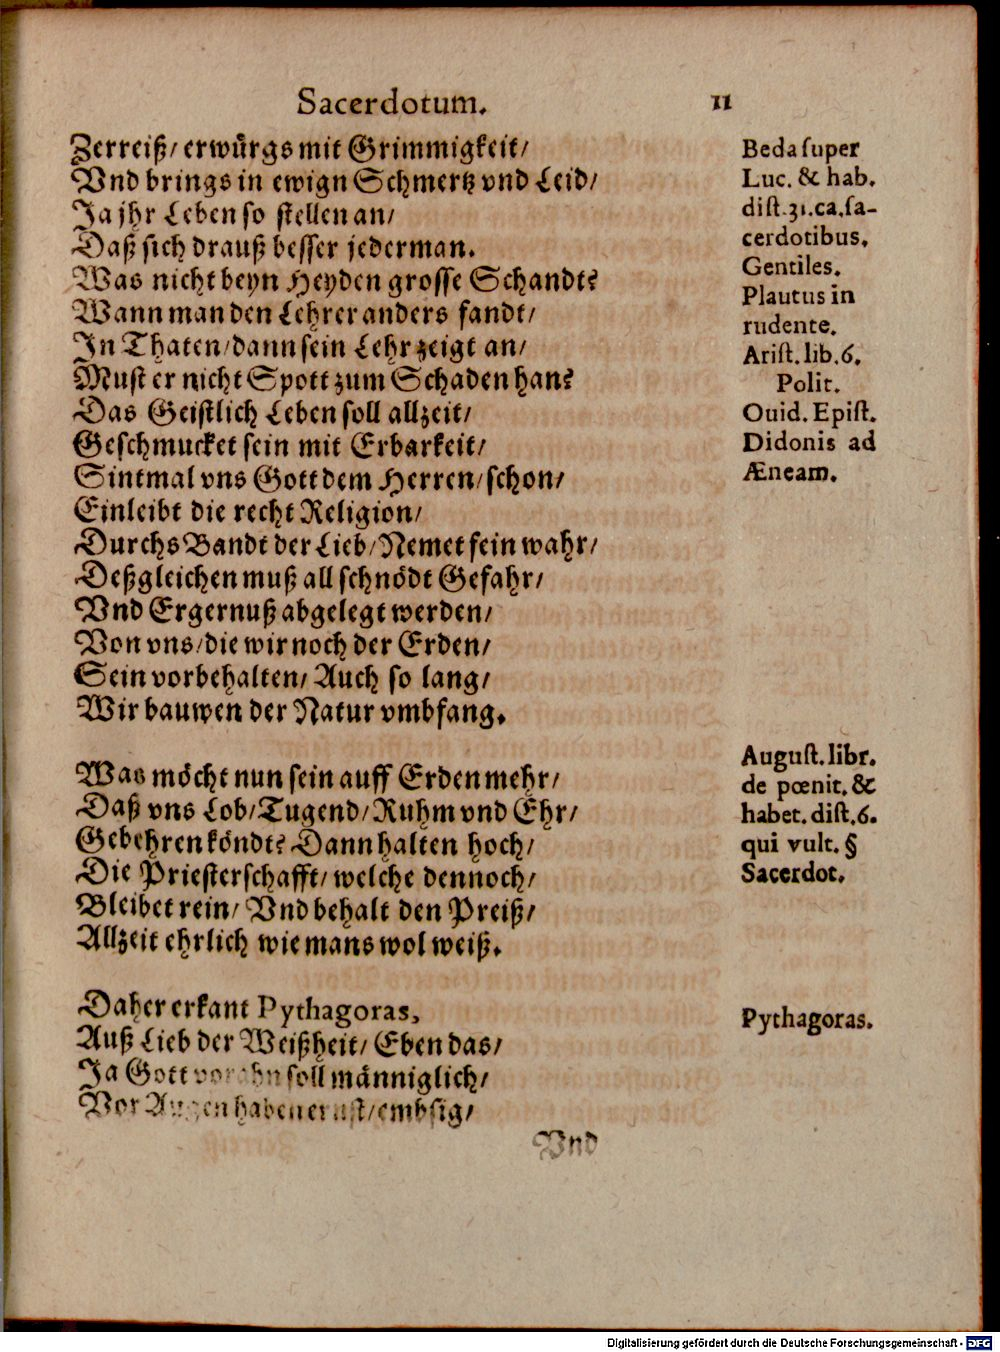 Sacerdotum. 11
Zerreiß/ erwürgs mit Grimmigkeit/
Vnd brings in ewign Schmertz vnd Leid/
Ja jhr Leben so stellen an/
Daß sich drauß besser jederman.
Was nicht beyn Heyden grosse Schandt?
Wann man den Lehrer anders fandt/
In Thaten/ dann sein Lehr zeigt an/
Must er nicht Spott zum Schaden han?
Das Geistlich Leben soll allzeit/
Geschmucket sein mit Erbarkeit/
Sintmal vns Gott dem Herren/ schon/
Einleibt die recht Religion/
Durchs Bandt der Lieb/ Nemet sein wahr/
Deßgleichen muß all schnödt Gefahr/
Vnd Ergernuß abgelegt werden/
Von vns/ die wir noch der Erden/
Sein vorbehalten/ Auch so lang/
Wir bauwen der Natur vmbfang.
Was möcht nun sein auff Erden mehr/
Daß vns Lob/ Tugend/ Ruhm vnd Ehr/
Gebehren köndt? Dann halten hoch/
Die Priesterschafft/ welche dennoch/
Bleibet rein/ Vnd behalt den Preiß/
Allzeit ehrlich wie mans wol weiß.
Daher erkant Pythagoras,
Auß Lieb der Weißheit/ Eben das/
Ja Gott vorahn soll männiglich/
Vor Augen haben ernst/ embsig/
Vnd
Beda super
Luc. & hab.
dist. 31. ca. sa-
cerdotibus.
Gentiles.
Plautus in
rudente.
Arist. lib. 6.
Polit.
Ouid. Epist.
Didonis ad
Æneam.
August. libr.
de pœnit. &
habet. dist. 6.
qui vult. §
Sacerdot.
Pythagoras.
Digitalisierung gefördert durch die Deutsche Forschungsgemeinschaft - DFG